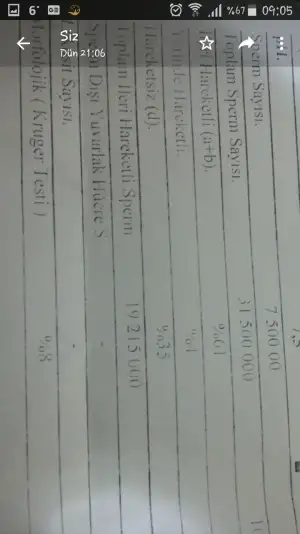 6° %67 09:05
Siz
Dün 21:06
pH. 7,5
Sperm Sayısı. 7 500 00
Toplam Sperm Sayısı. 31 500 000
Hareketli (a+b). %61
Hareketli. %4
Hareketsiz (d). %35
Toplam İleri Hareketli Sperm 19 215 000
Dışı Yuvarlak Hücre S -
Sayısı. -
Morfolojik ( Kruger Testi ) %8